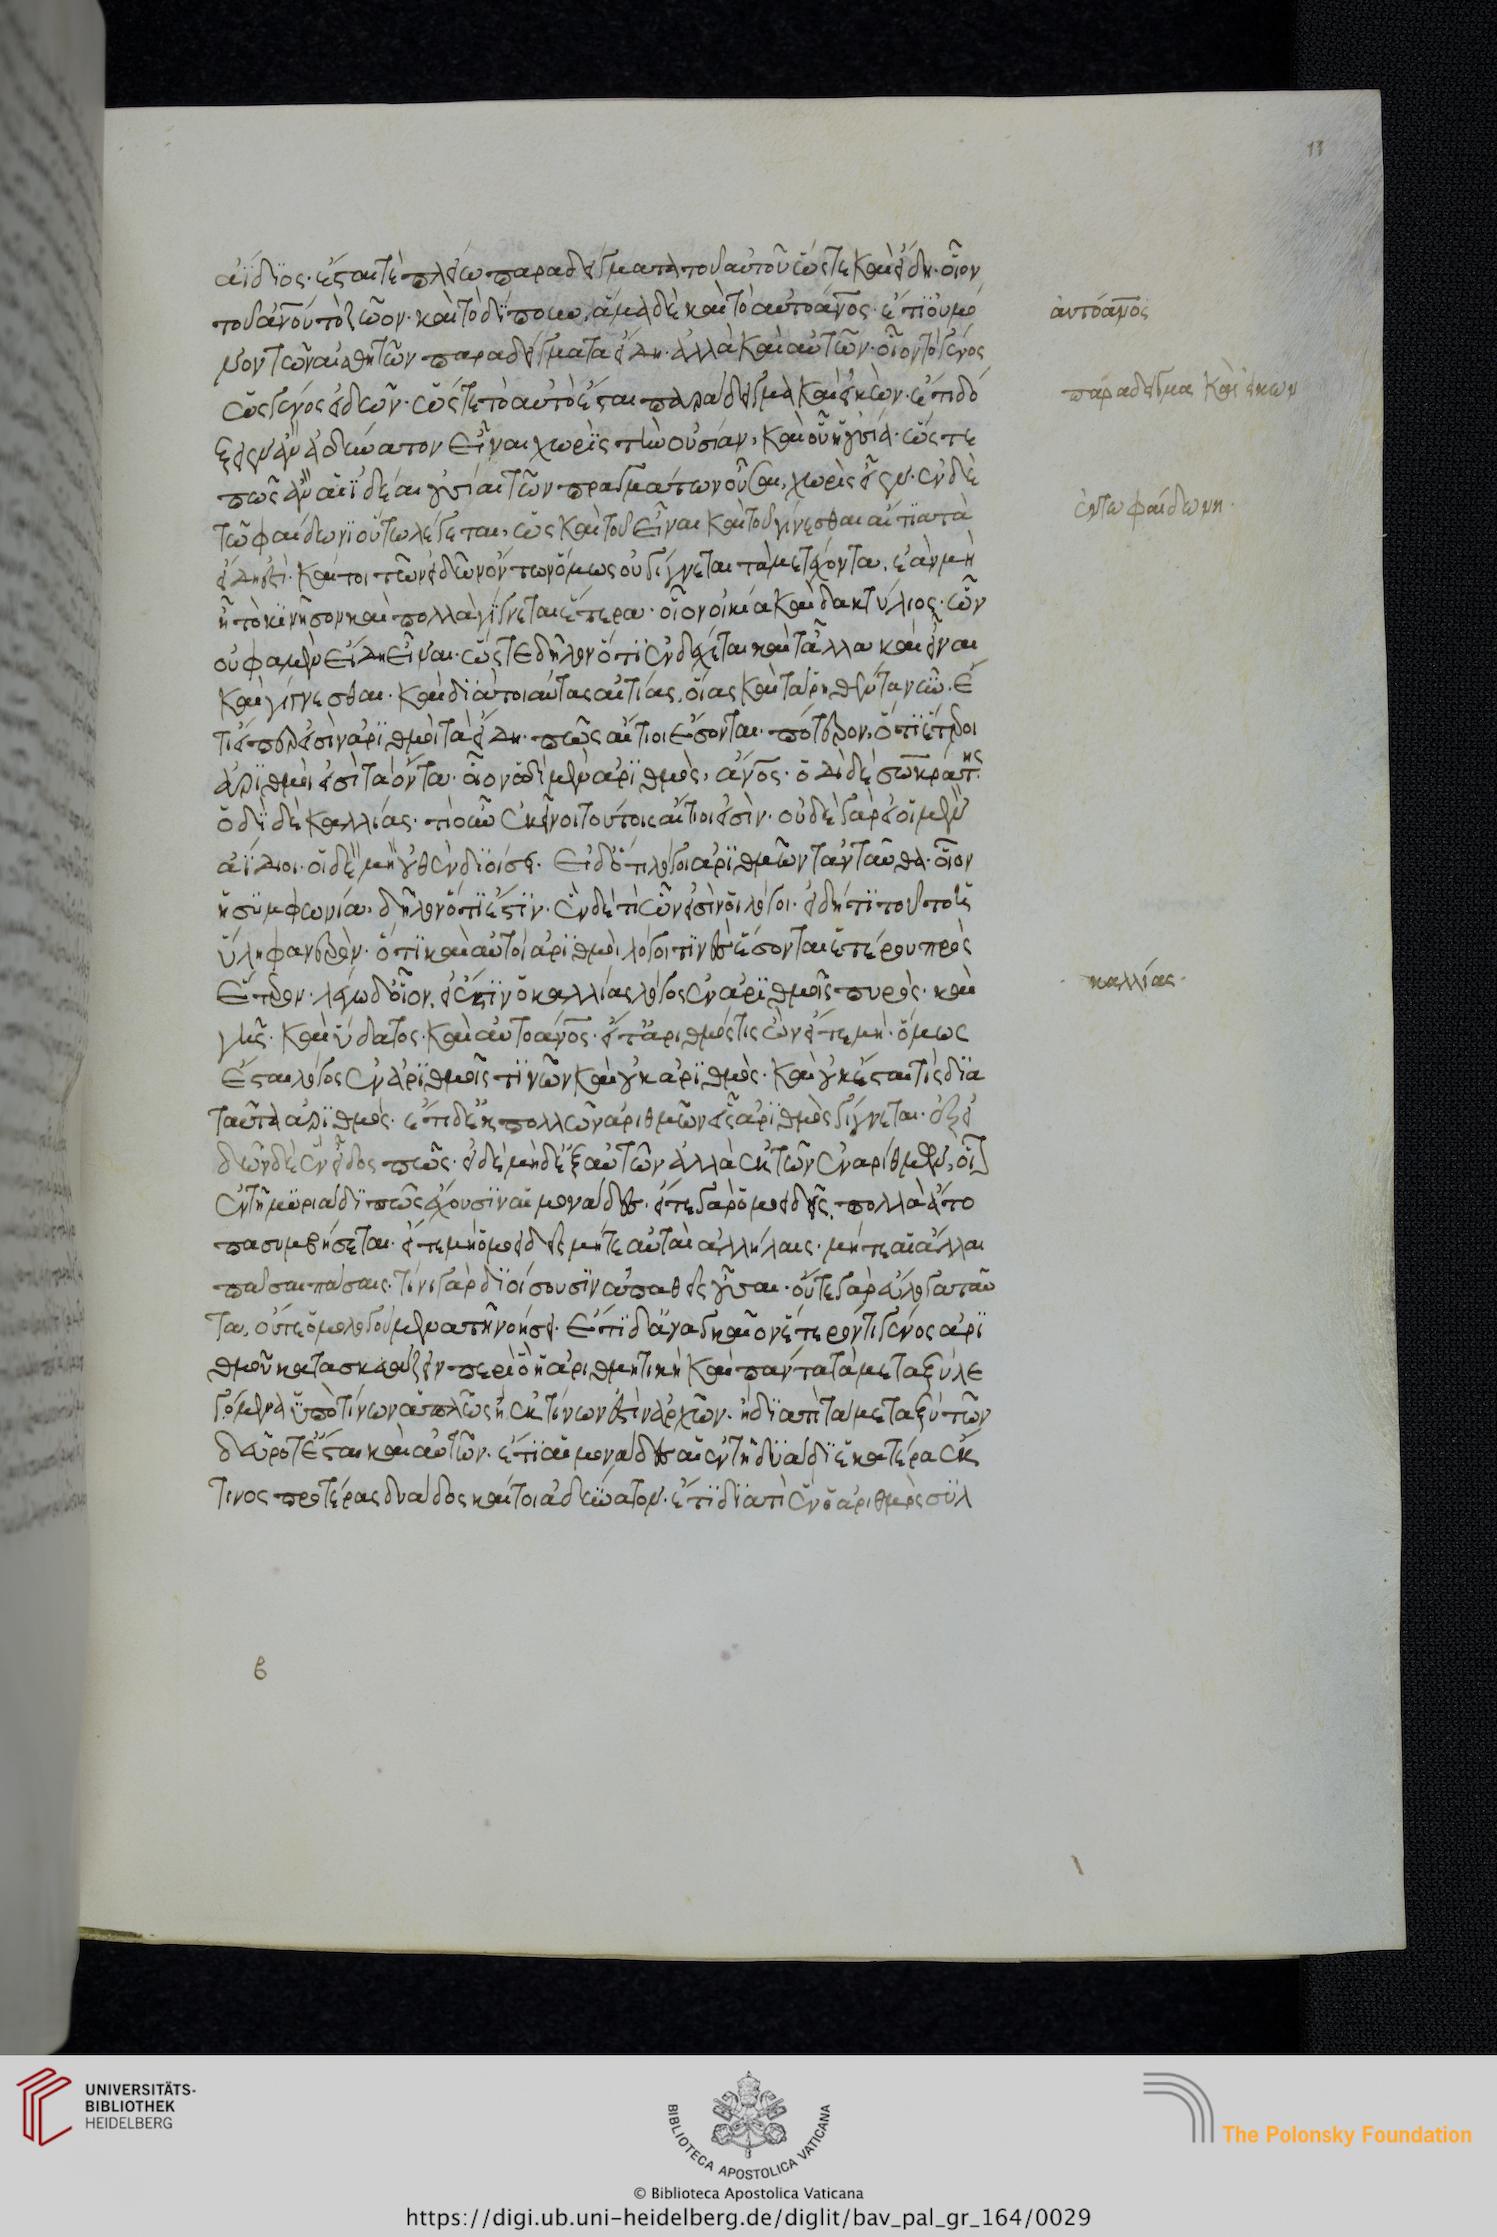 ἀΐδιος· ἔσται τὲ πλείω παραδείγματα τοῦ αὐτοῦ ὥστε καὶ εἴδη· οἷον
τοῦ ἀνου τὸ ζῶον· καὶ τὸ δίπουν, ἅμα δὲ καὶ τὸ αὐτοάνος· ἔτι οὐ μό
νον τῶν αἰσθητῶν παραδείγματα εἴδη· ἀλλὰ καὶ αὐτῶν· οἷον τὸ γένος
ὡς γένος εἰδῶν· ὥστε τὸ αὐτὸ ἔσται παράδειγμα καὶ εἰκὼν· ἔτι δό
ξειεν ἂν ἀδύνατον εἶναι χωρὶς τὴν οὐσίαν, καὶ οὗ ἡ οὐσία· ὥστε
πῶς ἂν αἱ ἰδέαι οὐσίαι τῶν πραγμάτων οὖσαι, χωρὶς εἶεν· ἐν δὲ
τῶ φαίδωνι οὕτω λέγεται, ὡς καὶ τοῦ εἶναι καὶ τοῦ γίνεσθαι αἴτια τὰ
εἴδη ἐστί· καίτοι τῶν εἰδῶν ὄντων ὅμως οὐ γίγνεται τὰ μετέχοντα, ἐὰν μὴ
ἦ τὸ κινῆσον καὶ πολλὰ γίγνεται ἕτερα· οἷον οἰκία καὶ δακτύλιος· ὧν
οὐ φαμὲν εἴδη εἶναι· ὥστε δῆλον ὅτι ἐνδέχεται καὶ τἆλλα καὶ εἶναι
καὶ γίγνεσθαι· καὶ διὰ τοιαύτας αἰτίας, οἵας καὶ τὰ ῥηθέντα νῦν· ἔ
τι εἴπερ εἰσὶν ἀριθμοὶ τὰ εἴδη· πῶς αἴτιοι ἔσονται· πότερον, ὅτι ἕτεροι
ἀριθμοὶ εἰσὶ τὰ ὄντα· οἷον ὁδὶ μὲν ἀριθμὸς, ἄνος· ὁδὶ δὲ σωκράτης·
ὁδὶ δὲ καλλίας· τί οὖν ἐκεῖνοι τούτοις αἴτιοι εἰσὶν· οὐδὲ γὰρ εἰ οἱ μὲν
ἀΐδιοι· οἱ δὲ μὴ οὐθὲν διοίσει· Εἰ δ' ὅτι λόγοι ἀριθμῶν τἀνταῦθα· οἷον
ἡ συμφωνία, δῆλον ὅτι ἐστὶν· ἓν δέ τι ὧν εἰσὶν οἱ λόγοι· εἰ δή τι τοῦτο ἡ
ὕλη φανερὸν· ὅτι καὶ αὐτοὶ ἀριθμοὶ λόγοι τινὲς ἔσονται ἑτέρου πρὸς
ἕτερον· λέγω δ' οἷον, εἰ ἔστιν ὁ καλλίας λόγος ἐν ἀριθμοῖς πυρὸς· καὶ
γῆς· καὶ ὕδατος· καὶ αὐτοάνος· εἴτ' ἀριθμός τις ὢν εἴτε μὴ· ὅμως
ἔσται λόγος ἐν ἀριθμοῖς τινῶν καὶ οὐκ ἀριθμὸς· καὶ οὐκ ἔσται τὶς διὰ
ταῦτα ἀριθμὸς· ἔτι δ' ἐκ πολλῶν ἀριθμῶν εἷς ἀριθμὸς γίγνεται· ἐξ εἰ
δῶν δὲ ἓν εἶδος πῶς· εἰ δὲ μηδὲ ἐξ αὐτῶν ἀλλὰ ἐκ τῶν ἐν ἀριθμῶ, οἷον
ἐν τῆ μυριάδι πῶς ἔχουσιν αἱ μονάδες· εἴτε γὰρ ὁμοειδεῖς, πολλὰ ἄτο
πα συμβήσεται· εἴτε μὴ ὁμοειδεῖς μήτε αὐταὶ ἀλλήλαις· μήτε αἱ ἄλλαι
πᾶσαι πάσαις· τίνι γὰρ διοίσουσιν ἀπαθεῖς οὖσαι· οὔτε γὰρ εὔλογα ταῦ
τα, οὔτε ὁμολογούμενα τῆ νοήσει· Ἔτι δ' ἀναγκαῖον ἕτερόν τι γένος ἀρι
θμοῦ κατασκευάζειν περὶ ὃ ἡ ἀριθμητικὴ καὶ πάντα τὰ μεταξὺ λε
γόμενα ὑπό τινων ἁπλῶς ἢ ἐκ τίνων ἐστὶν ἀρχῶν· ἢ διατί τὰ μεταξὺ τῶν
δεῦρό τ' ἔσται καὶ αὐτῶν· ἔτι αἱ μονάδες αἱ ἐν τῆ δυάδι ἑκατέρα ἔκ
τινος προτέρας δυάδος καίτοι ἀδύνατον· ἔτι διατί ἓν ὁ ἀριθμὸς συλ
ἀυτόανος
παράδειγμα καὶ εἰκων
ἐν τω φαίδωνι·
καλλίας·
β
11
UNIVERSITÄTS-
BIBLIOTHEK
HEIDELBERG
BIBLIOTECA APOSTOLICA VATICANA
The Polonsky Foundation
© Biblioteca Apostolica Vaticana
https://digi.ub.uni-heidelberg.de/diglit/bav_pal_gr_164/0029